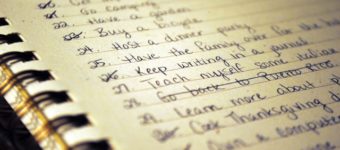 Go camping
Have a garden
23. Buy a bicycle
24. Host a dinner party
25. Have the family over for the
26. Keep writing in a journal
27. Teach myself some italian
28. Go back to Puerto Rico
29. Learn more about
Cook Thanksgiving
Own a computer